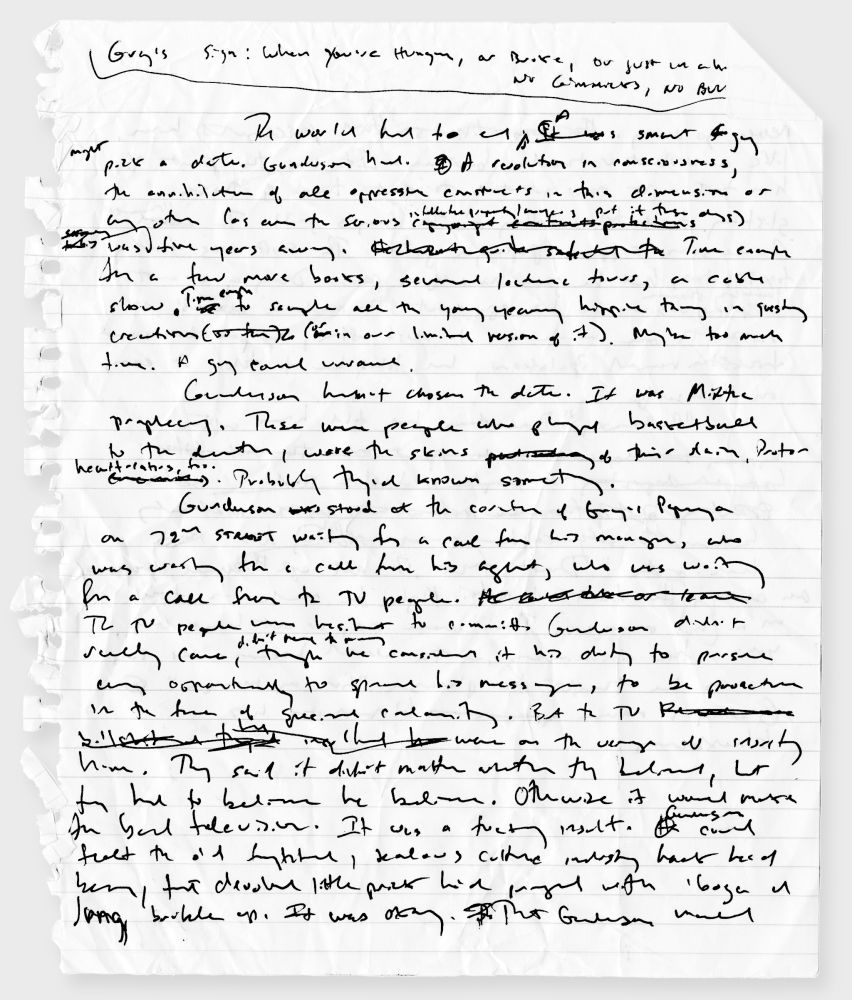 Gray's Sign: When you're Hungry, or Broke, or just in a h
No Gimmicks, No Bull
The world had to end, A smart guy
might pick a date. Gunderson had. A revolution in consciousness,
the annihilation of all oppressive constructs in this dimension or
any other (as even the serious intellectual property lawyers put it these days)
was five years away. Time enough
for a few more books, several lecture tours, a cable
show. Time enough to sample all the young yearning hippie thing in
creation (or in our limited version of it). Maybe too much
time. A guy could unravel.
Gunderson hadn't chosen the date. It was
prophecy. These were people who played basketball
to the death, wore the skins of their slain, Proto-
heart-eaters, too. Probably they'd known something.
Gunderson stood at the corner of Gray's Papaya
on 72nd Street waiting for a call from his manager, who
was waiting for a call from his agent, who was waiting
for a call from the TV people.
The TV people were hesitant to commit. Gunderson didn't
really care, didn't need the money, though he considered it his duty to pursue
every opportunity to spread his message, to be proactive
in the face of calamity. But the TV
were on the verge of insulting
him. They said it didn't matter whether they believed, but
they had to believe he believed. Otherwise it would make
for bad television. It was a fucking insult. Gunderson could
feel the old frightened, jealous culture industry
being, that devoted little prick he'd purged with iboga
long back, up. It was okay. That Gunderson